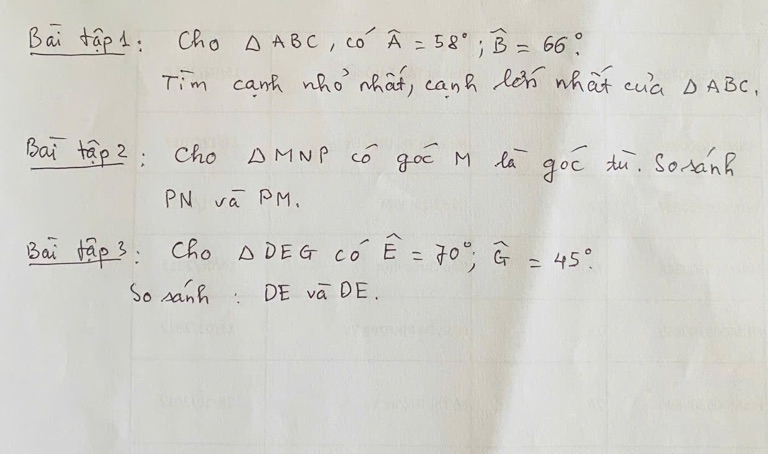 Bài tập 1: Cho △ABC, có Â = 58°; B̂ = 66°.
Tìm cạnh nhỏ nhất, cạnh lớn nhất của △ABC.
Bài tập 2: Cho △MNP có góc M là góc tù. So sánh
PN và PM.
Bài tập 3: Cho △DEG có Ê = 70°; Ĝ = 45°.
So sánh: DE và DE.